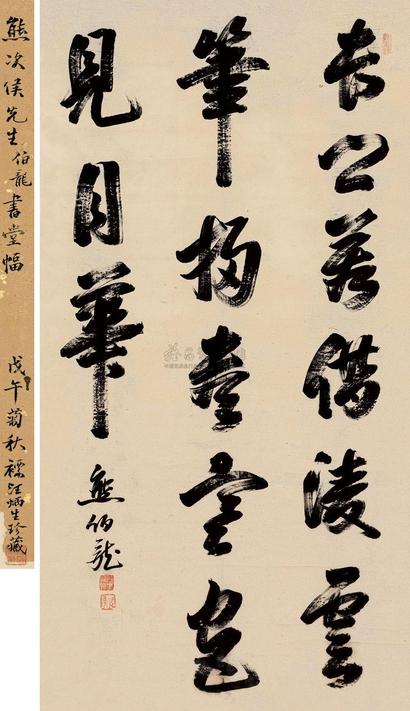 長公若借凌雲
筆掃盡空花
見月華
熊伯龍
熊次侯先生伯龍書堂幅
戊午菊秋 汪炳生珍藏